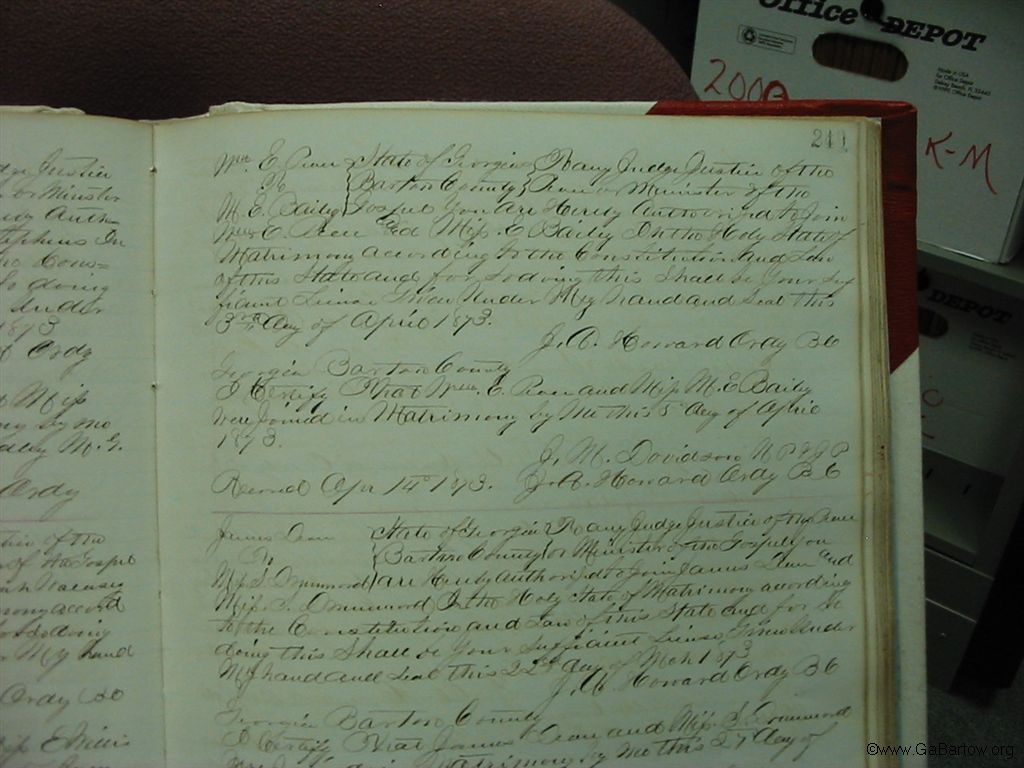 Office DEPOT
Made in USA
2000
K-M
DEPOT
241
Wm E. State of Georgia To any Judge Justice of the
To Bartow County Peace or Minister of the
M. E. Baily Gospel You are Hereby Authorized to Join
E. and Miss E Baily In the Holy State of
Matrimony according to the Constitution and Law
of this State and for so doing this Shall be Your Suf
ficient License Given Under My hand and Seal this
3rd day of April 1873.
J. A. Howard Ordy BC
Georgia Bartow County
I Certify That Wm E. and Miss M. E Baily
were Joined in Matrimony by Me this 5 day of April
1873.
J. M. Davidson N P & J P
Apr 14th 1873. J. A. Howard Ordy BC
James State of Georgia To any Judge Justice of the Peace
To Bartow County or Minister of the Gospel You
Miss S. Drummond are Hereby Authorized to Join James and
Miss S. Drummond In the Holy State of Matrimony according
to the Constitution and Law of this State and for So
doing this Shall be Your Sufficient License Given Under
My hand and Seal this 22nd day of Mch 1873
J. A. Howard Ordy BC
Georgia Bartow County
I Certify That James and Miss S. Drummond
Matrimony by Me this 27 day of
Justice
or Minister
Stephens In
the Cons=
So doing
Under
1873
Ordy
Miss
by me
M. G.
Ordy
of the
of the Gospel
accord
So doing
My hand
Ordy BC
©www.GaBartow.org